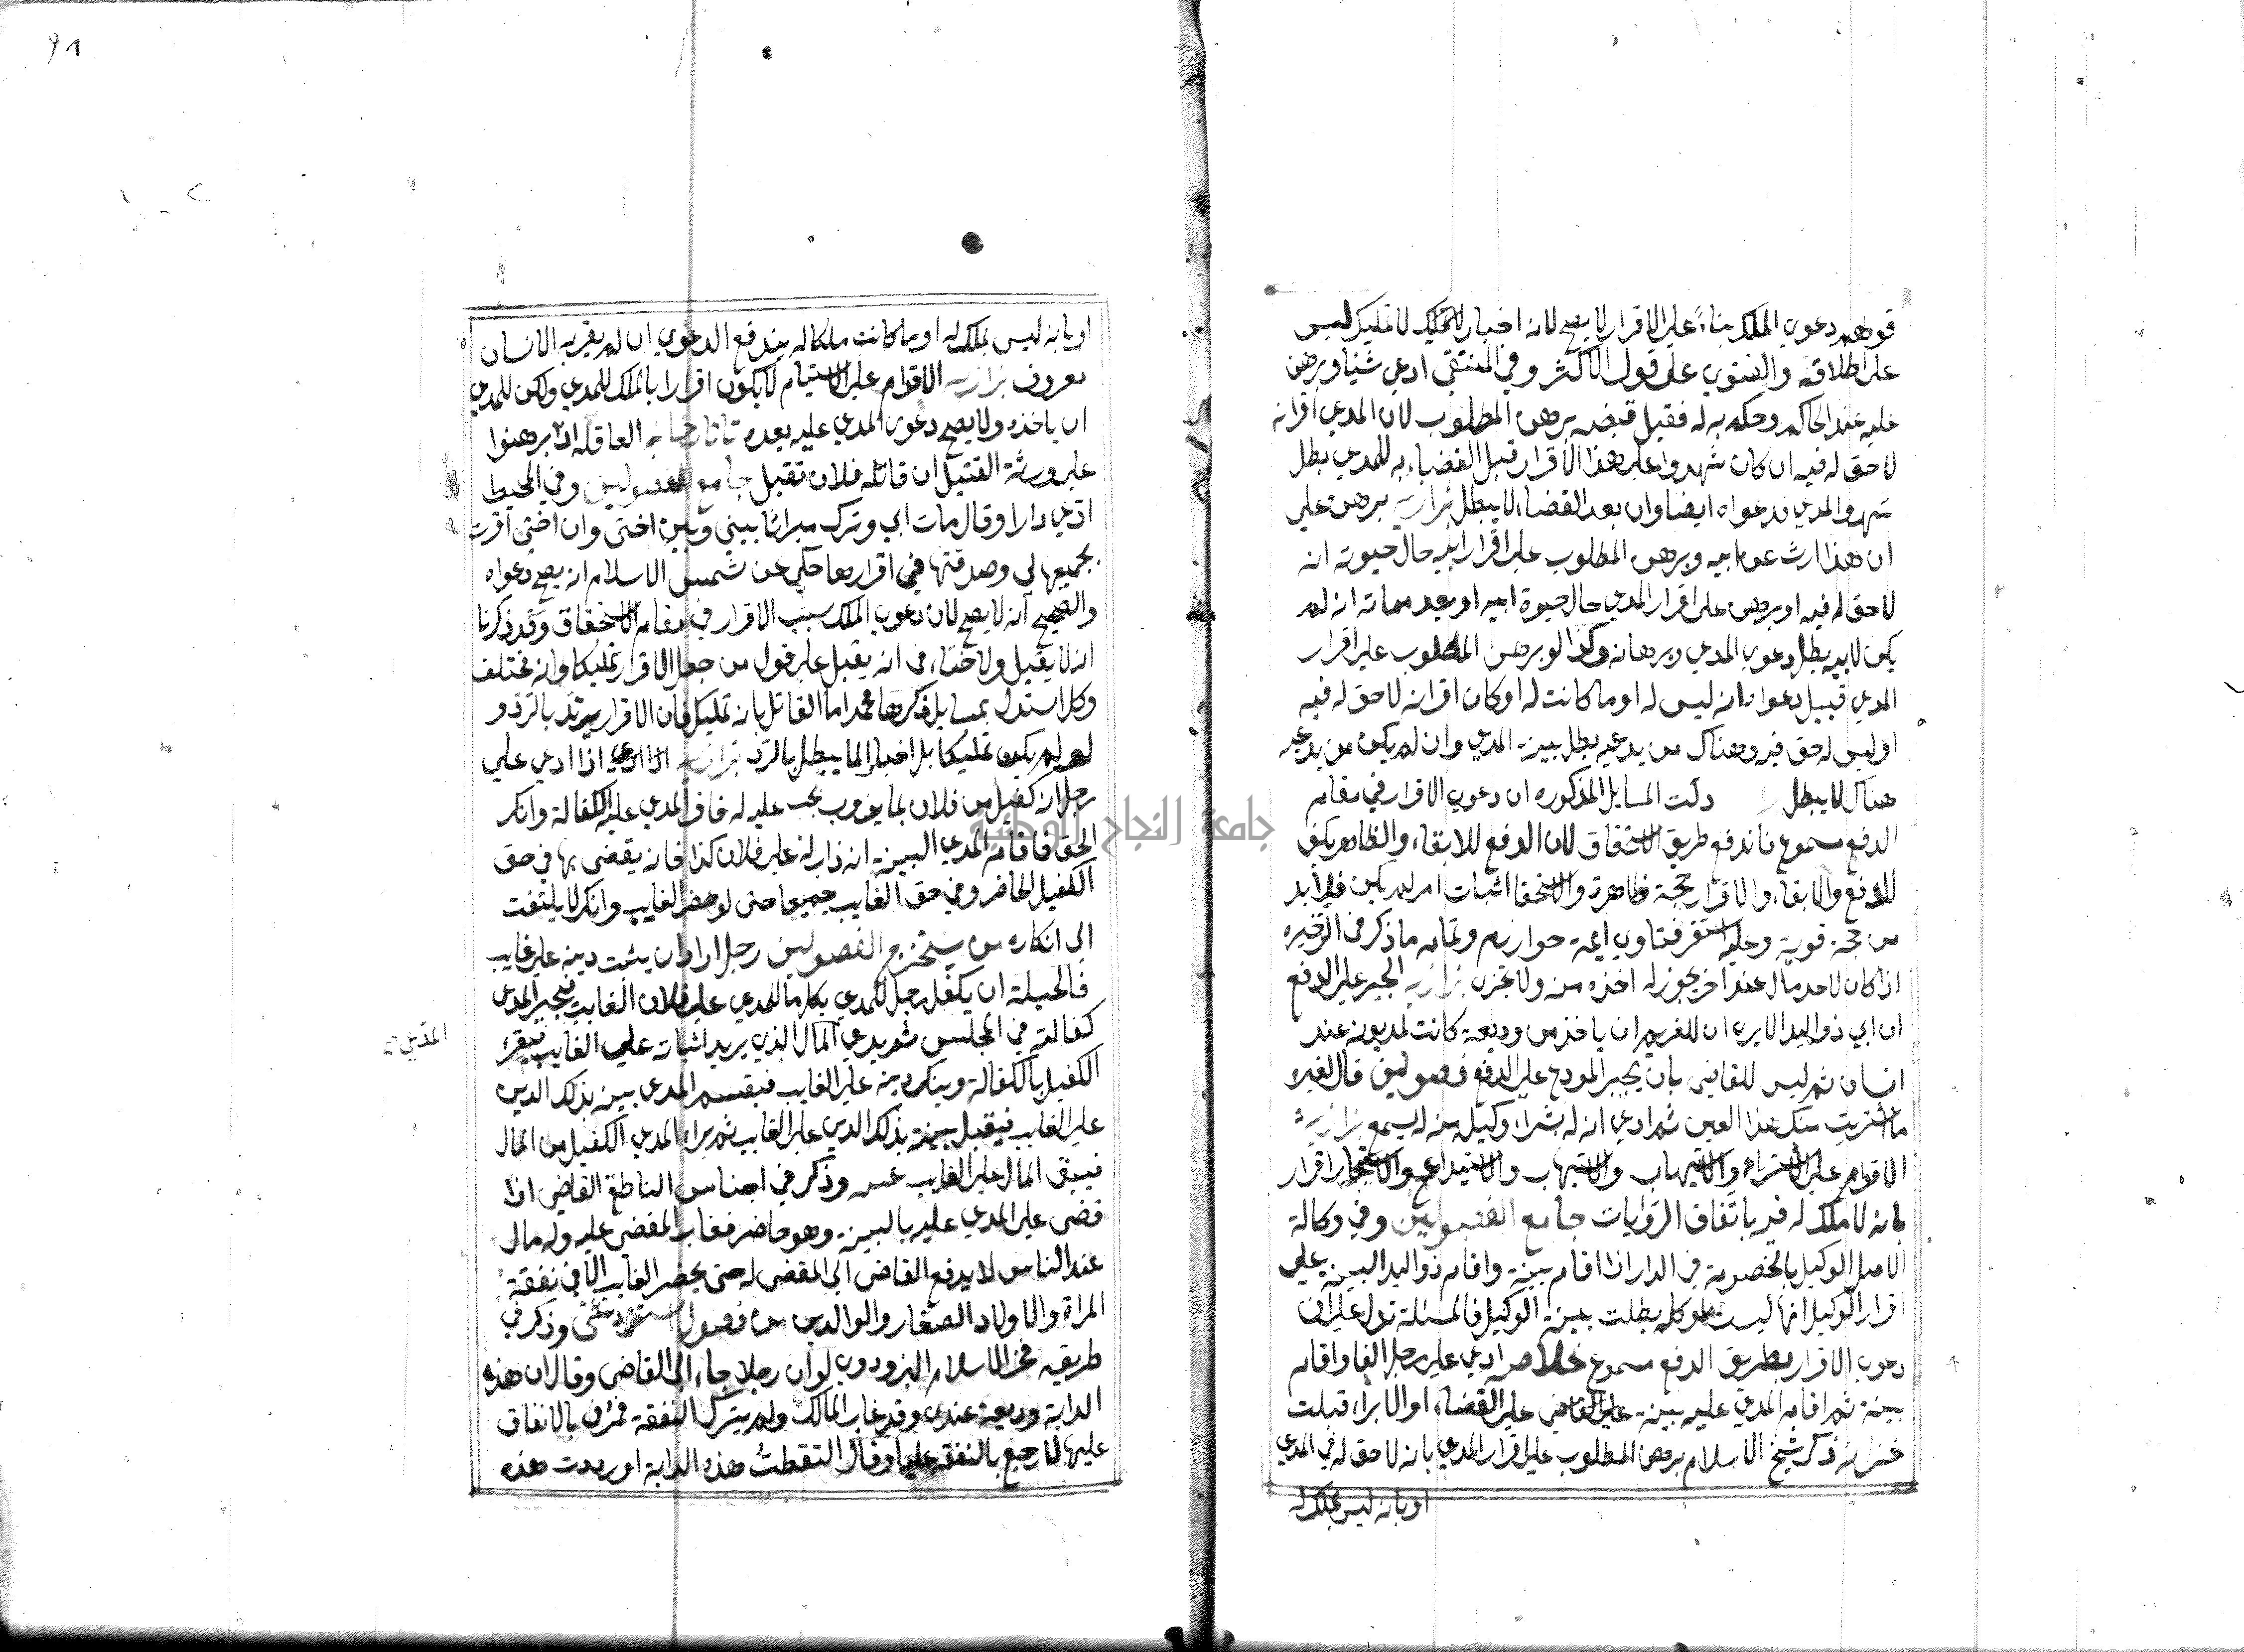 قولهم دعوي الملك بناء علي الاقرار لا يصح لانه اخبار لا تمليك ليس
علي اطلاقه والفتوي علي قول الاكثر وفي المنتقي ادعي شيئا وبرهن
عليه عند الحاكم وحكم به له فقبل قبضه برهن المطلوب لان المدعي اقر انه
لا حق له فيه ان كان شهدوا علي هذا الاقرار قبل القضاء به للمدعي بطل
شهود المدعي ودعواه ايضا وان بعد القضاء لا يبطل بزازيه برهن علي
ان هذا ارث عن ابيه وبرهن المطلوب علي اقرار ابيه حال حيوته انه
لا حق له فيه او برهن علي اقرار المدعي حال حيوة ابيه او بعد مماته انه لم
يكن لابيه بطل دعوي المدعي وبرهانه وكذا لو برهن المطلوب علي اقرار
المدعي قبيل دعواه انه ليس له او ما كانت له او كان اقر انه لا حق له فيه
او ليس له حق فيه وهناك من يدعيه بطل بينة المدعي وان لم يكن من يدعيه
هناك لا يبطل دلت المسايل المذكوره ان دعوي الاقرار في مقام
الدفع مسموع فاندفع طريق الاستحقاق لان الدفع للابقاء والظاهر يكفي
للدفع والابقاء والاقرار حجة ظاهرة والاستحقاق اثبات امر لم يكن فلا بد
من حجة قوية وعليه استقر فتاوي ايمة خوارزم وتمامه ما ذكر في الذخيره
اذا كان لاحد مال عند اخر يجوز له اخذه منه ولا بزازيه الجبر علي الدفع
ان ابي ذو اليد الا يري ان للغريم ان ياخذ من وديعة كانت لمديونه عند
انسان ثم ليس للقاضي بان يجبر المودع علي الدفع فصولين قال لغيره
ما اشتريت منك هذا العين ثم ادعي انه له بشراء وكيله منه له يسمع بزازيه
الاقدام علي الاشتراء والاستيهاب والاستيداع والاستيجار اقرار
بانه لا ملك له فيه باتفاق الروايات جامع الفصولين وفي وكالة
الاصل الوكيل بالخصومة في الدار اذا اقام بينة واقام ذو اليد البينة علي
اقرار الوكيل انها ليست لموكله بطلت بينة الوكيل فالمسئلة تدل علي ان
دعوي الاقرار بطريق الدفع مسموع خلاصه ادعي علي رجل الفا واقام
بينة ثم اقام المدعي عليه بينة علي القاضي علي القضاء او الابراء قبلت
خزانه ذكر شيخ الاسلام برهن المطلوب علي اقرار المدعي بانه لا حق له في المدعي
او بانه ليس بملك له
٩١
او بانه ليس بملك له او ما كانت ملكا له يندفع الدعوي ان لم يقر به الانسان
معروف بزازيه الاقدام علي الاستيام لا يكون اقرارا بالملك للمدعي ولكن للمدعي
ان ياخذه ولا يصح دعوي المدعي عليه بعده تاتارخانيه العاقلة اذا برهنوا
علي ورثة القتيل ان قاتله فلان تقبل جامع الفصولين وفي المحيط
ادعي دارا وقال مات ابي وترك ميراثا بيني وبين اختي وان اختي اقرت
بجميعها لي وصدقتها في اقرارها حكي عن شمس الاسلام انه يصح دعواه
والصحيح انه لا يصح لان دعوي الملك بسبب الاقرار في مقام الاستحقاق وقد ذكرنا
انه لا يقبل ولا خفاء في انه يقبل علي قول من جعل الاقرار تمليكا وانه مختلف
وكل استدل بمسايل ذكرها محمد اما القائل بانه تمليك فان الاقرار يرتد بالرد و
لو لم يكن تمليكا بل اخبارا لما يبطل بالرد بزازيه اذا ادعي علي
رجل انه كفيل من فلان بما يذوب يجب عليه له فاقر المدعي عليه الكفالة وانكر
الحق فاقام المدعي البينة انه ذاب له علي فلان كذا فانه يقضي بها في حق
الكفيل الحاضر وفي حق الغايب جميعا حتي لو حضر الغايب وانكر لا يلتفت
الي انكاره من الفصولين رجل اراد ان يثبت دينه علي غايب
فالحيلة ان يكفل رجل للمدعي بكل ما للمدعي علي فلان الغايب فيجيز المدعي
كفالته في المجلس ثم يدعي المال الذي يريد اثباته علي الغايب فيقر
المدعي
الكفيل بالكفالة وينكر دينه علي الغايب فيقيم المدعي بينة بذلك الدين
علي الغايب فيقبل بينة بذلك الدين علي الغايب ثم يبرا المدعي الكفيل من المال
فيبقي المال علي الغايب وذكر في اجناس الناطفي القاضي اذا
قضي علي المدعي عليه بالبينة وهو حاضر فغاب المقضي عليه وله مال
عند الناس لا يدفع القاضي الي المقضي له حتي يحضر الغايب الا في نفقة
المراة والاولاد الصغار والوالدين من فصول استروشني وذكر في
طريقه فخر الاسلام البزدوي لو ان رجلا جاء الي القاضي وقال ان هذه
الدابة وديعة عندي وقد غاب المالك ولم يترك النفقة فمرني بالانفاق
عليها لا رجع بالنفقه عليها وقال التقطت هذه الدابة او ردت هذه
جامعة النجاح الوطنية